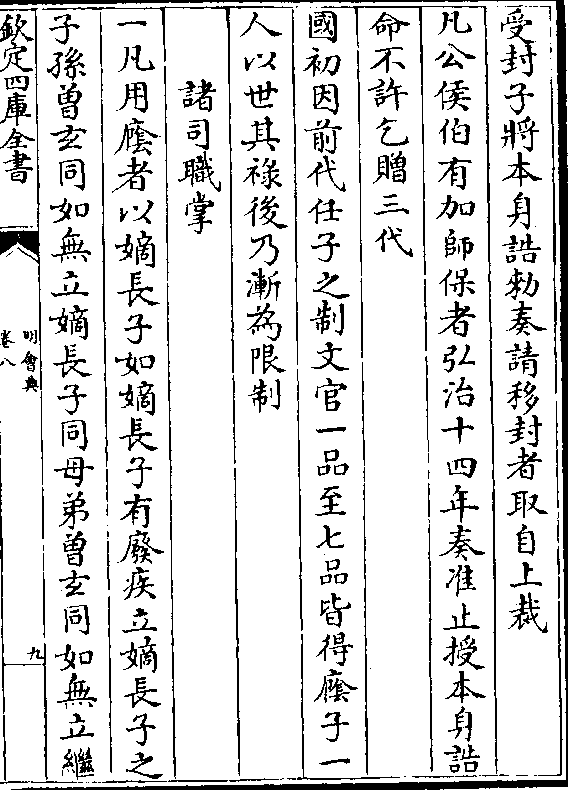 受封子將本身誥勅奏請移封者取自上裁
凡公侯伯有加師保者弘治十四年奏准止授本身誥
命不許乞贈三代
國初因前代任子之制文官一品至七品皆得廕子一
人以世其祿後乃漸為限制
諸司職掌
一凡用廕者以嫡長子如嫡長子有廢疾立嫡長子之
子孫曽玄同如無立嫡長子同母弟曽玄同如無立繼
欽定四庫全書
明會典
卷八
九